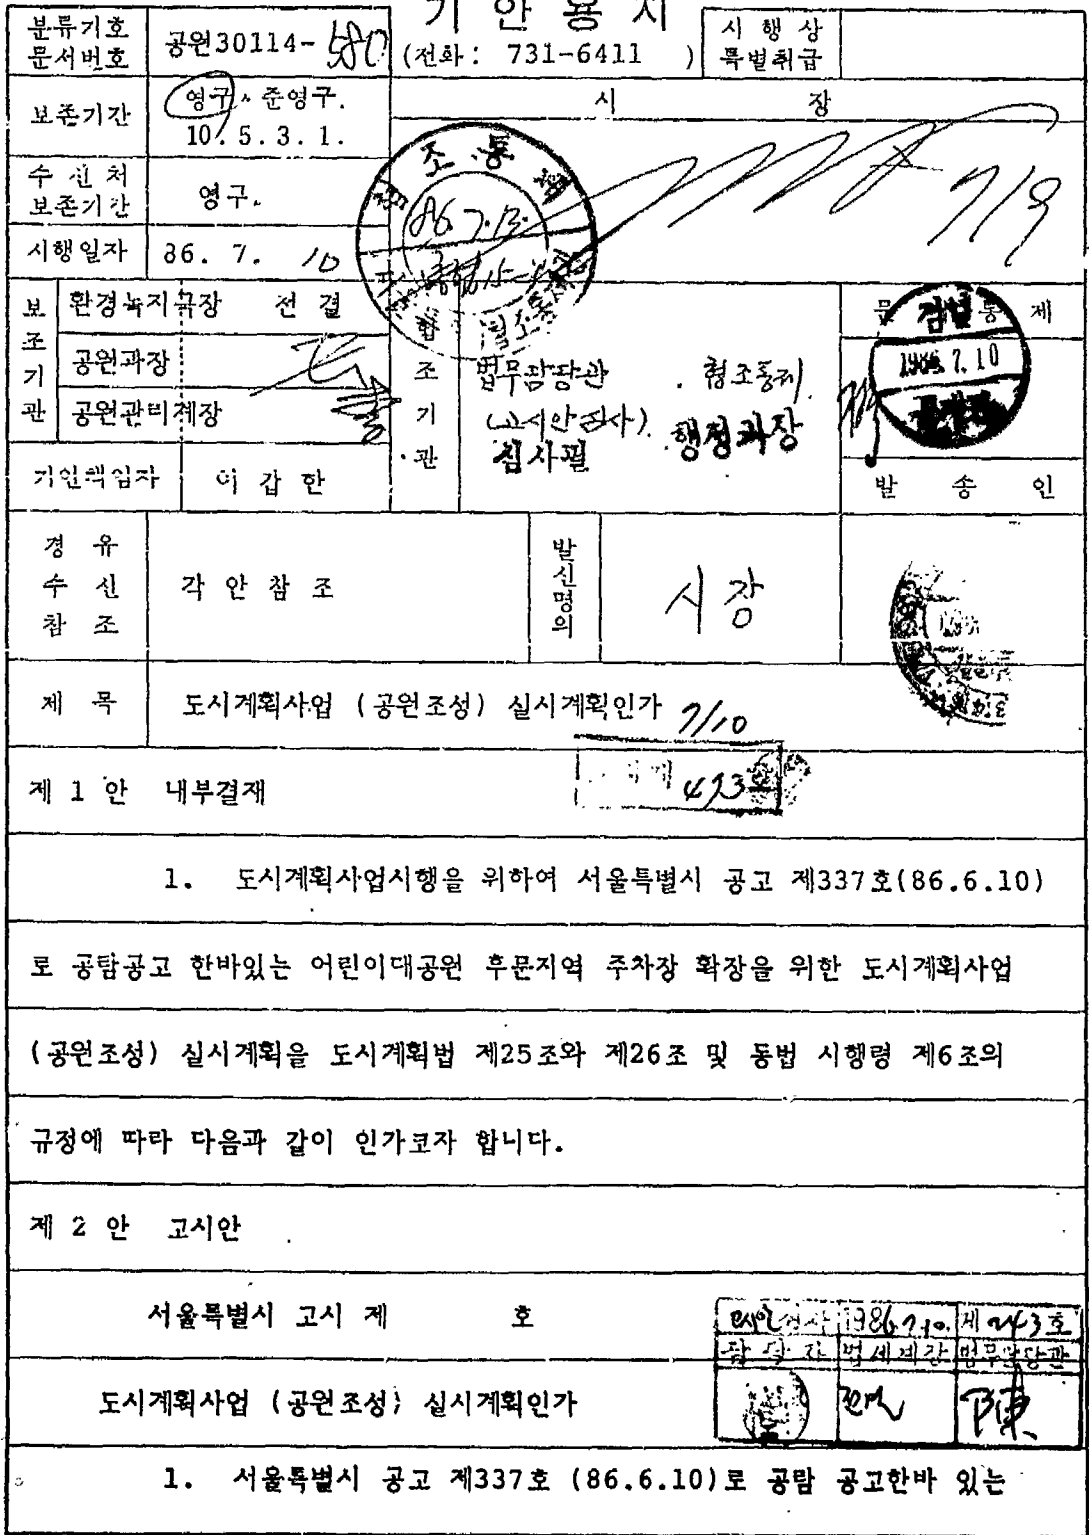 기 안 용 지
분류기호
문서번호
공원30114-580
(전화: 731-6411 )
시 행 상
특별취급
보존기간
영구. 준영구.
10. 5. 3. 1.
시 장
수 신 처
보존기간
영구.
7/9
시행일자
86. 7. 10
86. 7. 13.
보조기관
환경녹지국장 전 결
공원과장
공원관리계장
기안책임자
이 갑 한
협조기관
법무담당관
(고시안심사)
심사필
협조통제
행정과장
문 서 통 제
검열
1986. 7. 10
발 송 인
경 유
수 신
참 조
각 안 참 조
발신명의
시장
제 목
도시계획사업 (공원조성) 실시계획인가 7/10
제 1 안 내부결재
493호
1. 도시계획사업시행을 위하여 서울특별시 공고 제337호(86.6.10)
로 공람공고 한바있는 어린이대공원 후문지역 주차장 확장을 위한 도시계획사업
(공원조성) 실시계획을 도시계획법 제25조와 제26조 및 동법 시행령 제6조의
규정에 따라 다음과 같이 인가코자 합니다.
제 2 안 고시안
서울특별시 고시 제 호
1986. 7. 10. 제 243호
담 당 자 법제계장 법무담당관
도시계획사업 (공원조성) 실시계획인가
1. 서울특별시 공고 제337호 (86.6.10)로 공람 공고한바 있는